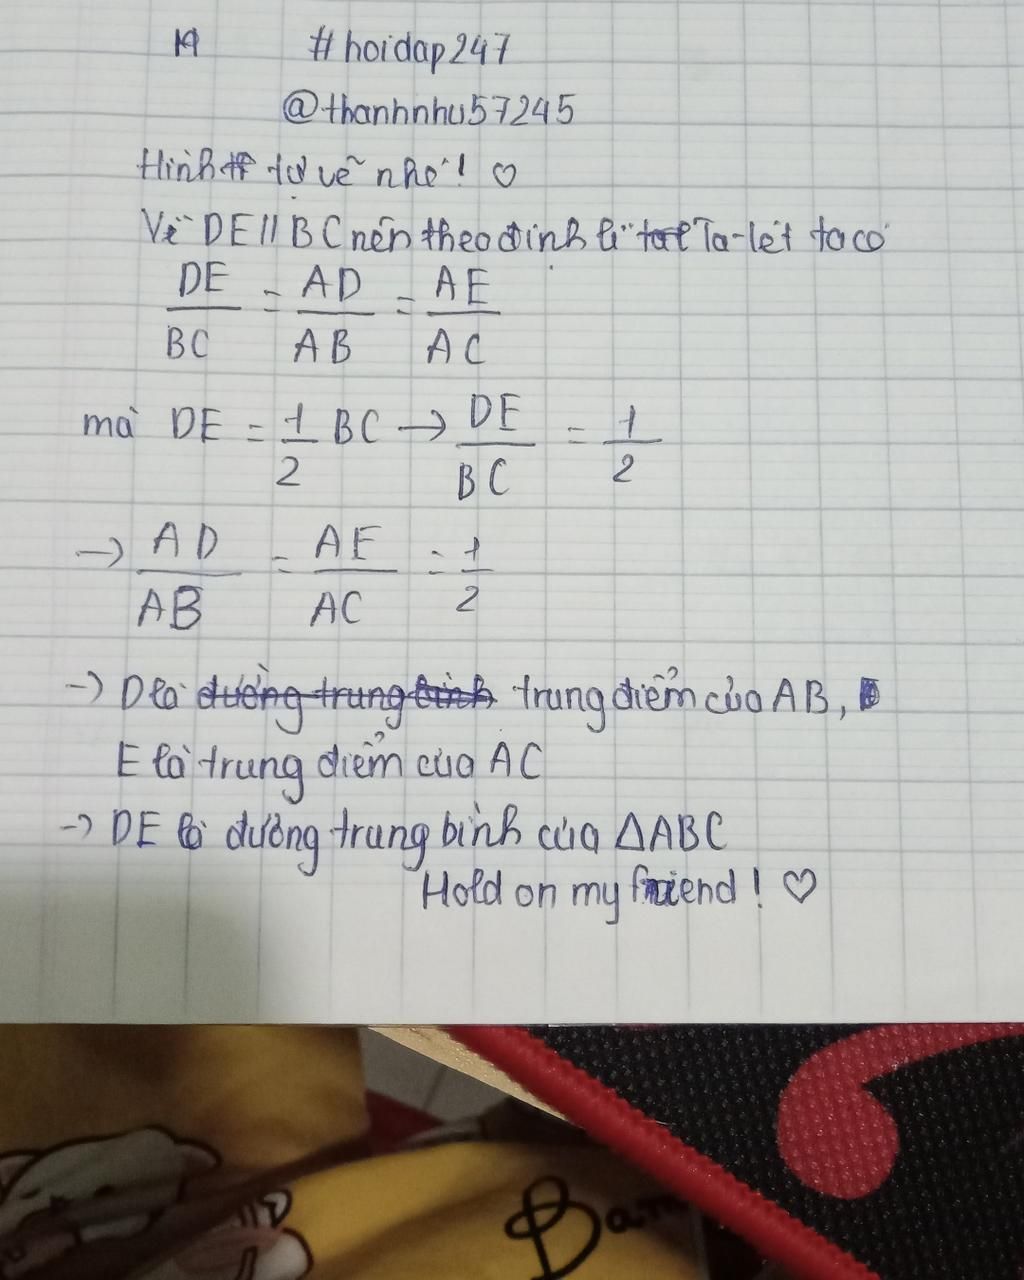 #hoidap247
@thanhnhu57245
Hình tự vẽ nhé! ♡
Vì DE // BC nên theo định lí Ta-lét ta có
DE/BC = AD/AB = AE/AC
mà DE = 1/2 BC → DE/BC = 1/2
→ AD/AB = AE/AC = 1/2
→ D là trung điểm của AB,
E là trung điểm của AC
→ DE là đường trung bình của ΔABC
Hold on my friend! ♡